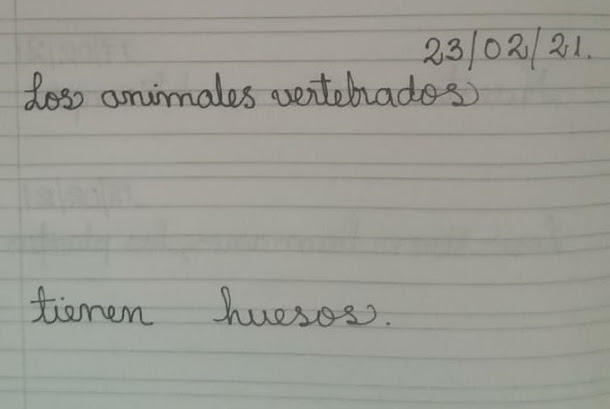 23/02/21.
Los animales vertebrados
tienen huesos.